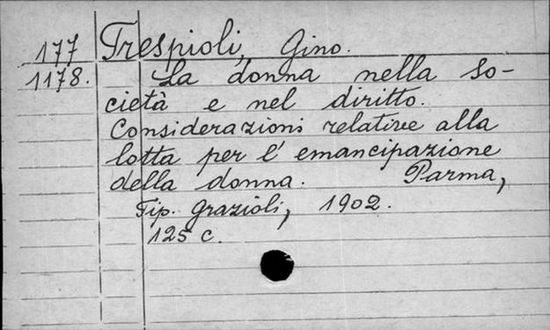 177 Trespioli, Gino.
1178. La donna nella so-
cietà e nel diritto.
Considerazioni relative alla
lotta per l' emancipazione
della donna. Parma,
Tip. Grazioli, 1902.
125 c.